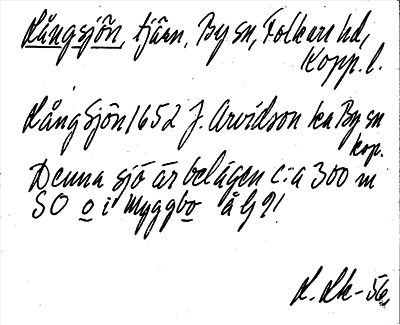 Långsjön, tjärn, By sn, Folkare hd,
Kopp. l.
Långsjön 1652 J. Arvidson ka By sn
kop.
Denna sjö är belägen c:a 300 m
SO o i Myggbo å G 91